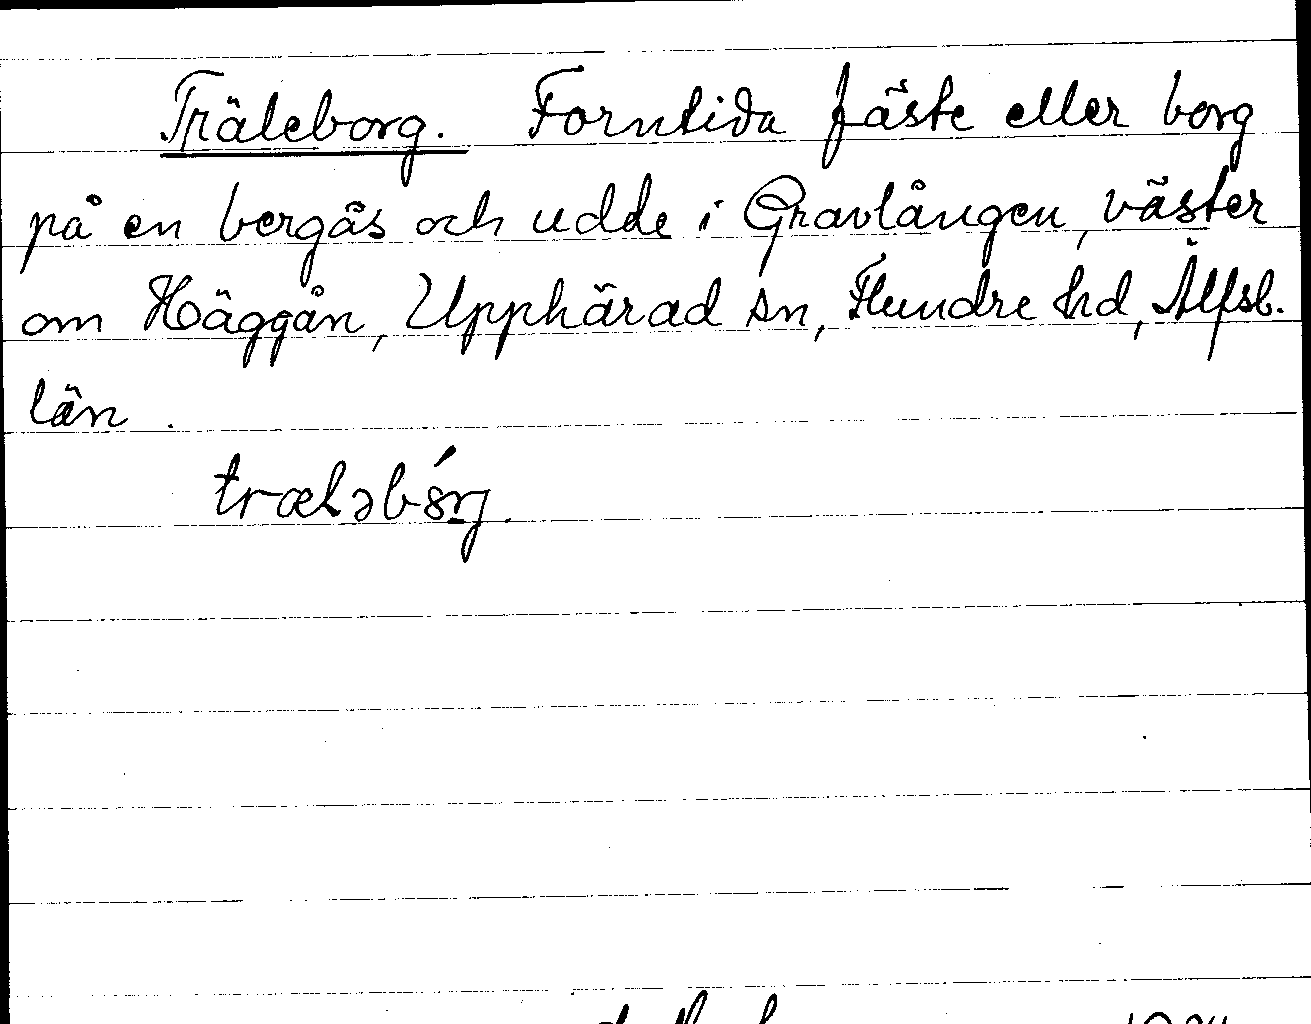 Träleborg. Forntida fäste eller borg
på en bergås och udde i Gravlången, väster
om Häggån, Upphärad sn, Flundre hd, Älfsb.
län.
træləbórj.